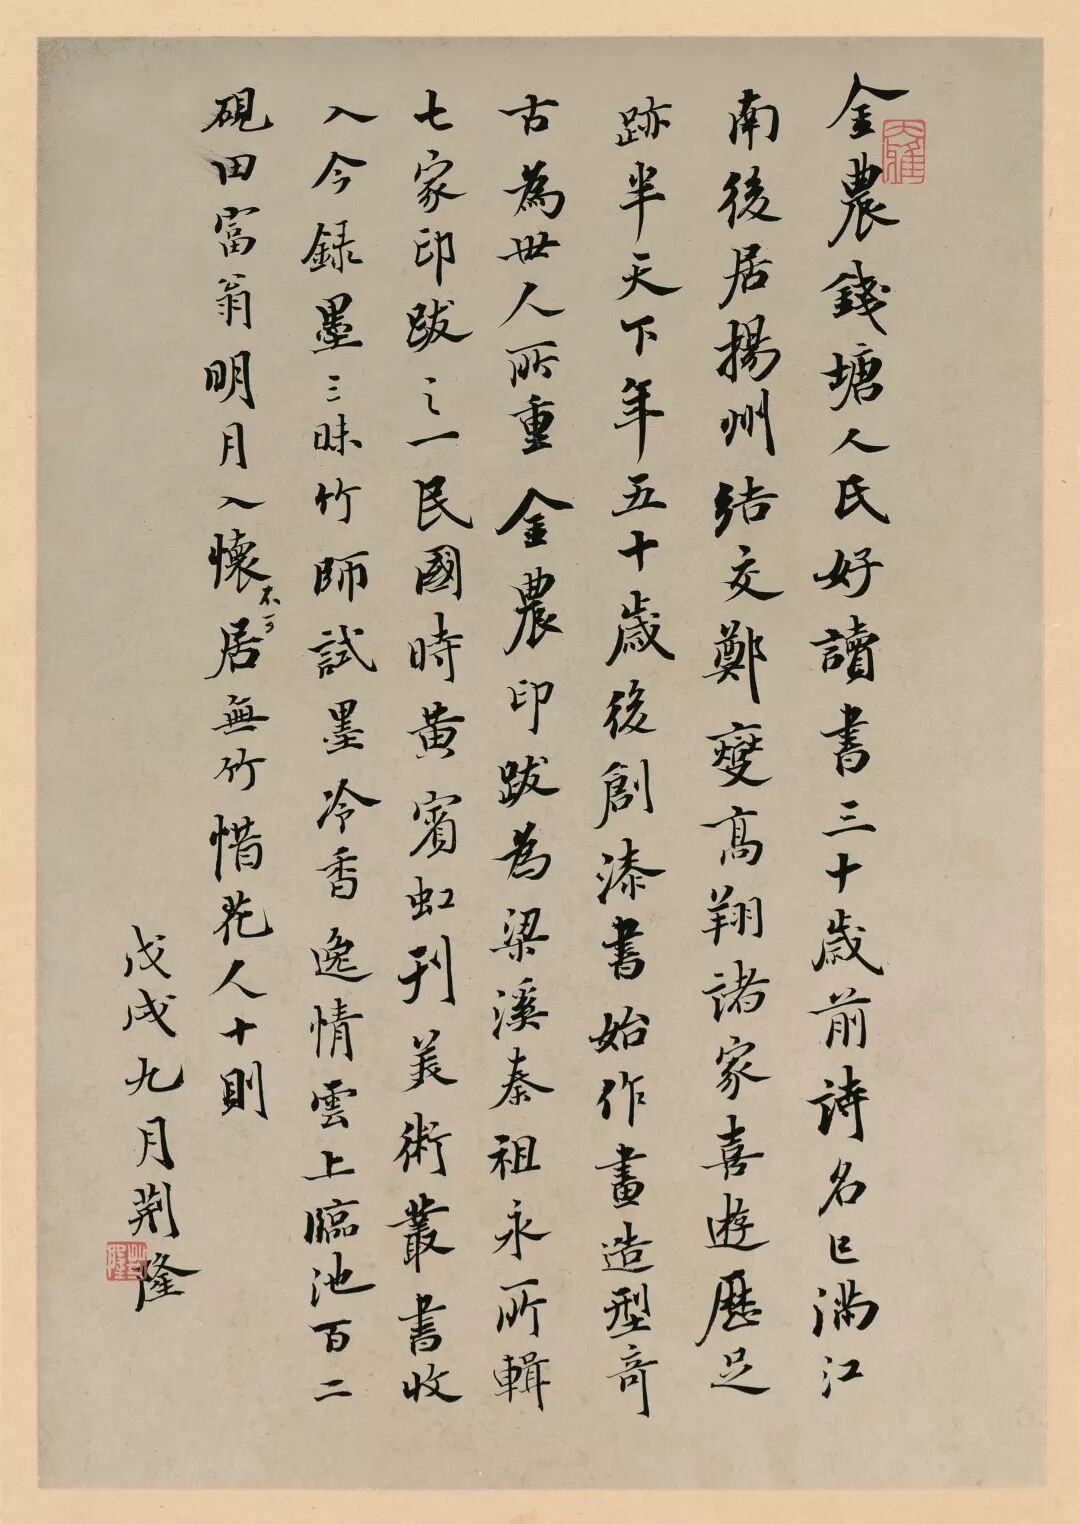 金農錢塘人氏好讀書三十歲前詩名已滿江
南後居揚州結交鄭燮高翔諸家喜遊歷足
跡半天下年五十歲後創漆書始作畫造型奇
古為世人所重金農印跋為梁溪秦祖永所輯
七家印跋之一民國時黃賓虹刊美術叢書收
入今錄墨三昧竹師試墨冷香逸情雲上臨池百二
硯田富翁明月入懷不可居無竹惜花人十則
戊戌九月荊隆